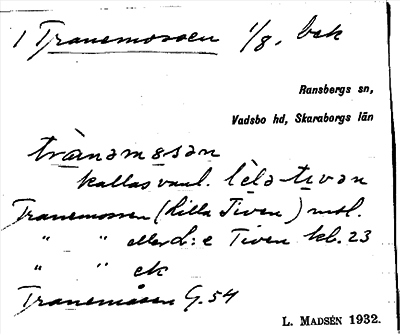 1 Tranemossen 1/8. bek
Ransbergs sn,
Vadsbo hd, Skaraborgs län
trànamosan
kallas vanl. lèla-tivan
Tranemossen (Lilla Tiven) mst.
" " eller L:e Tiven kb. 23
" " ek
Tranemåsen G.54
L. MADSÉN 1932.